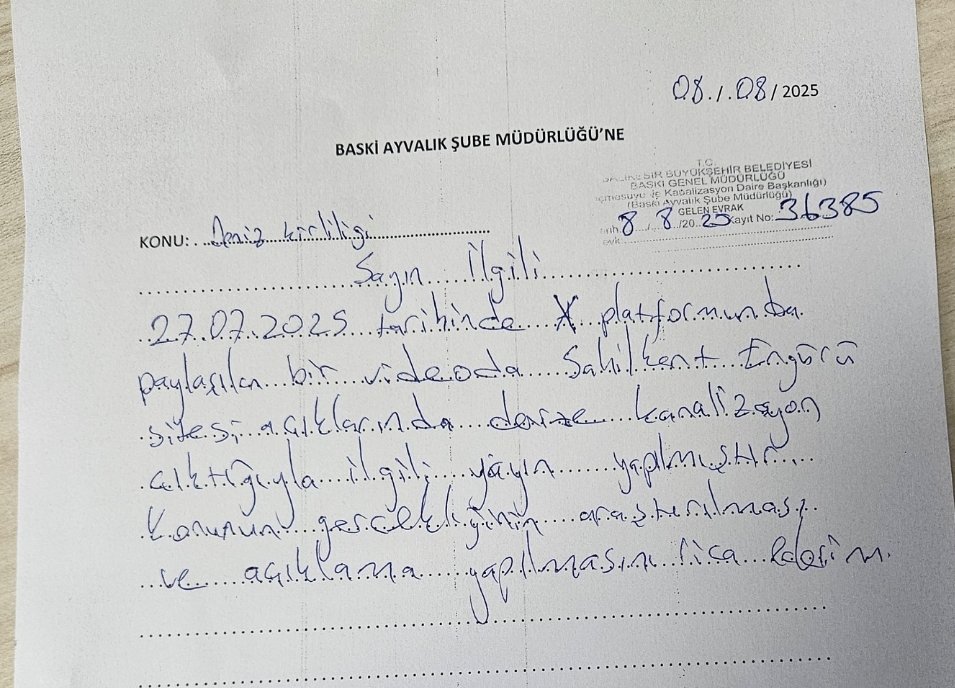 08./.08/2025
BASKİ AYVALIK ŞUBE MÜDÜRLÜĞÜ'NE
T.C.
BALIKESİR BÜYÜKŞEHİR BELEDİYESİ
BASKİ GENEL MÜDÜRLÜĞÜ
İçmesuyu ve Kanalizasyon Daire Başkanlığı)
(Baski Ayvalık Şube Müdürlüğü)
GELEN EVRAK
8/8/2025 Kayıt No: 36385
KONU: Deniz kirliliği
Sayın İlgili
27.07.2025 tarihinde X platformunda
paylaşılan bir videoda Sahilkent Engürü
sitesi açıklarında denize kanalizasyon
çıktığıyla ilgili yayın yapılmıştır.
Konunun gerçekliğinin araştırılması
ve açıklama yapılmasını rica ederim.